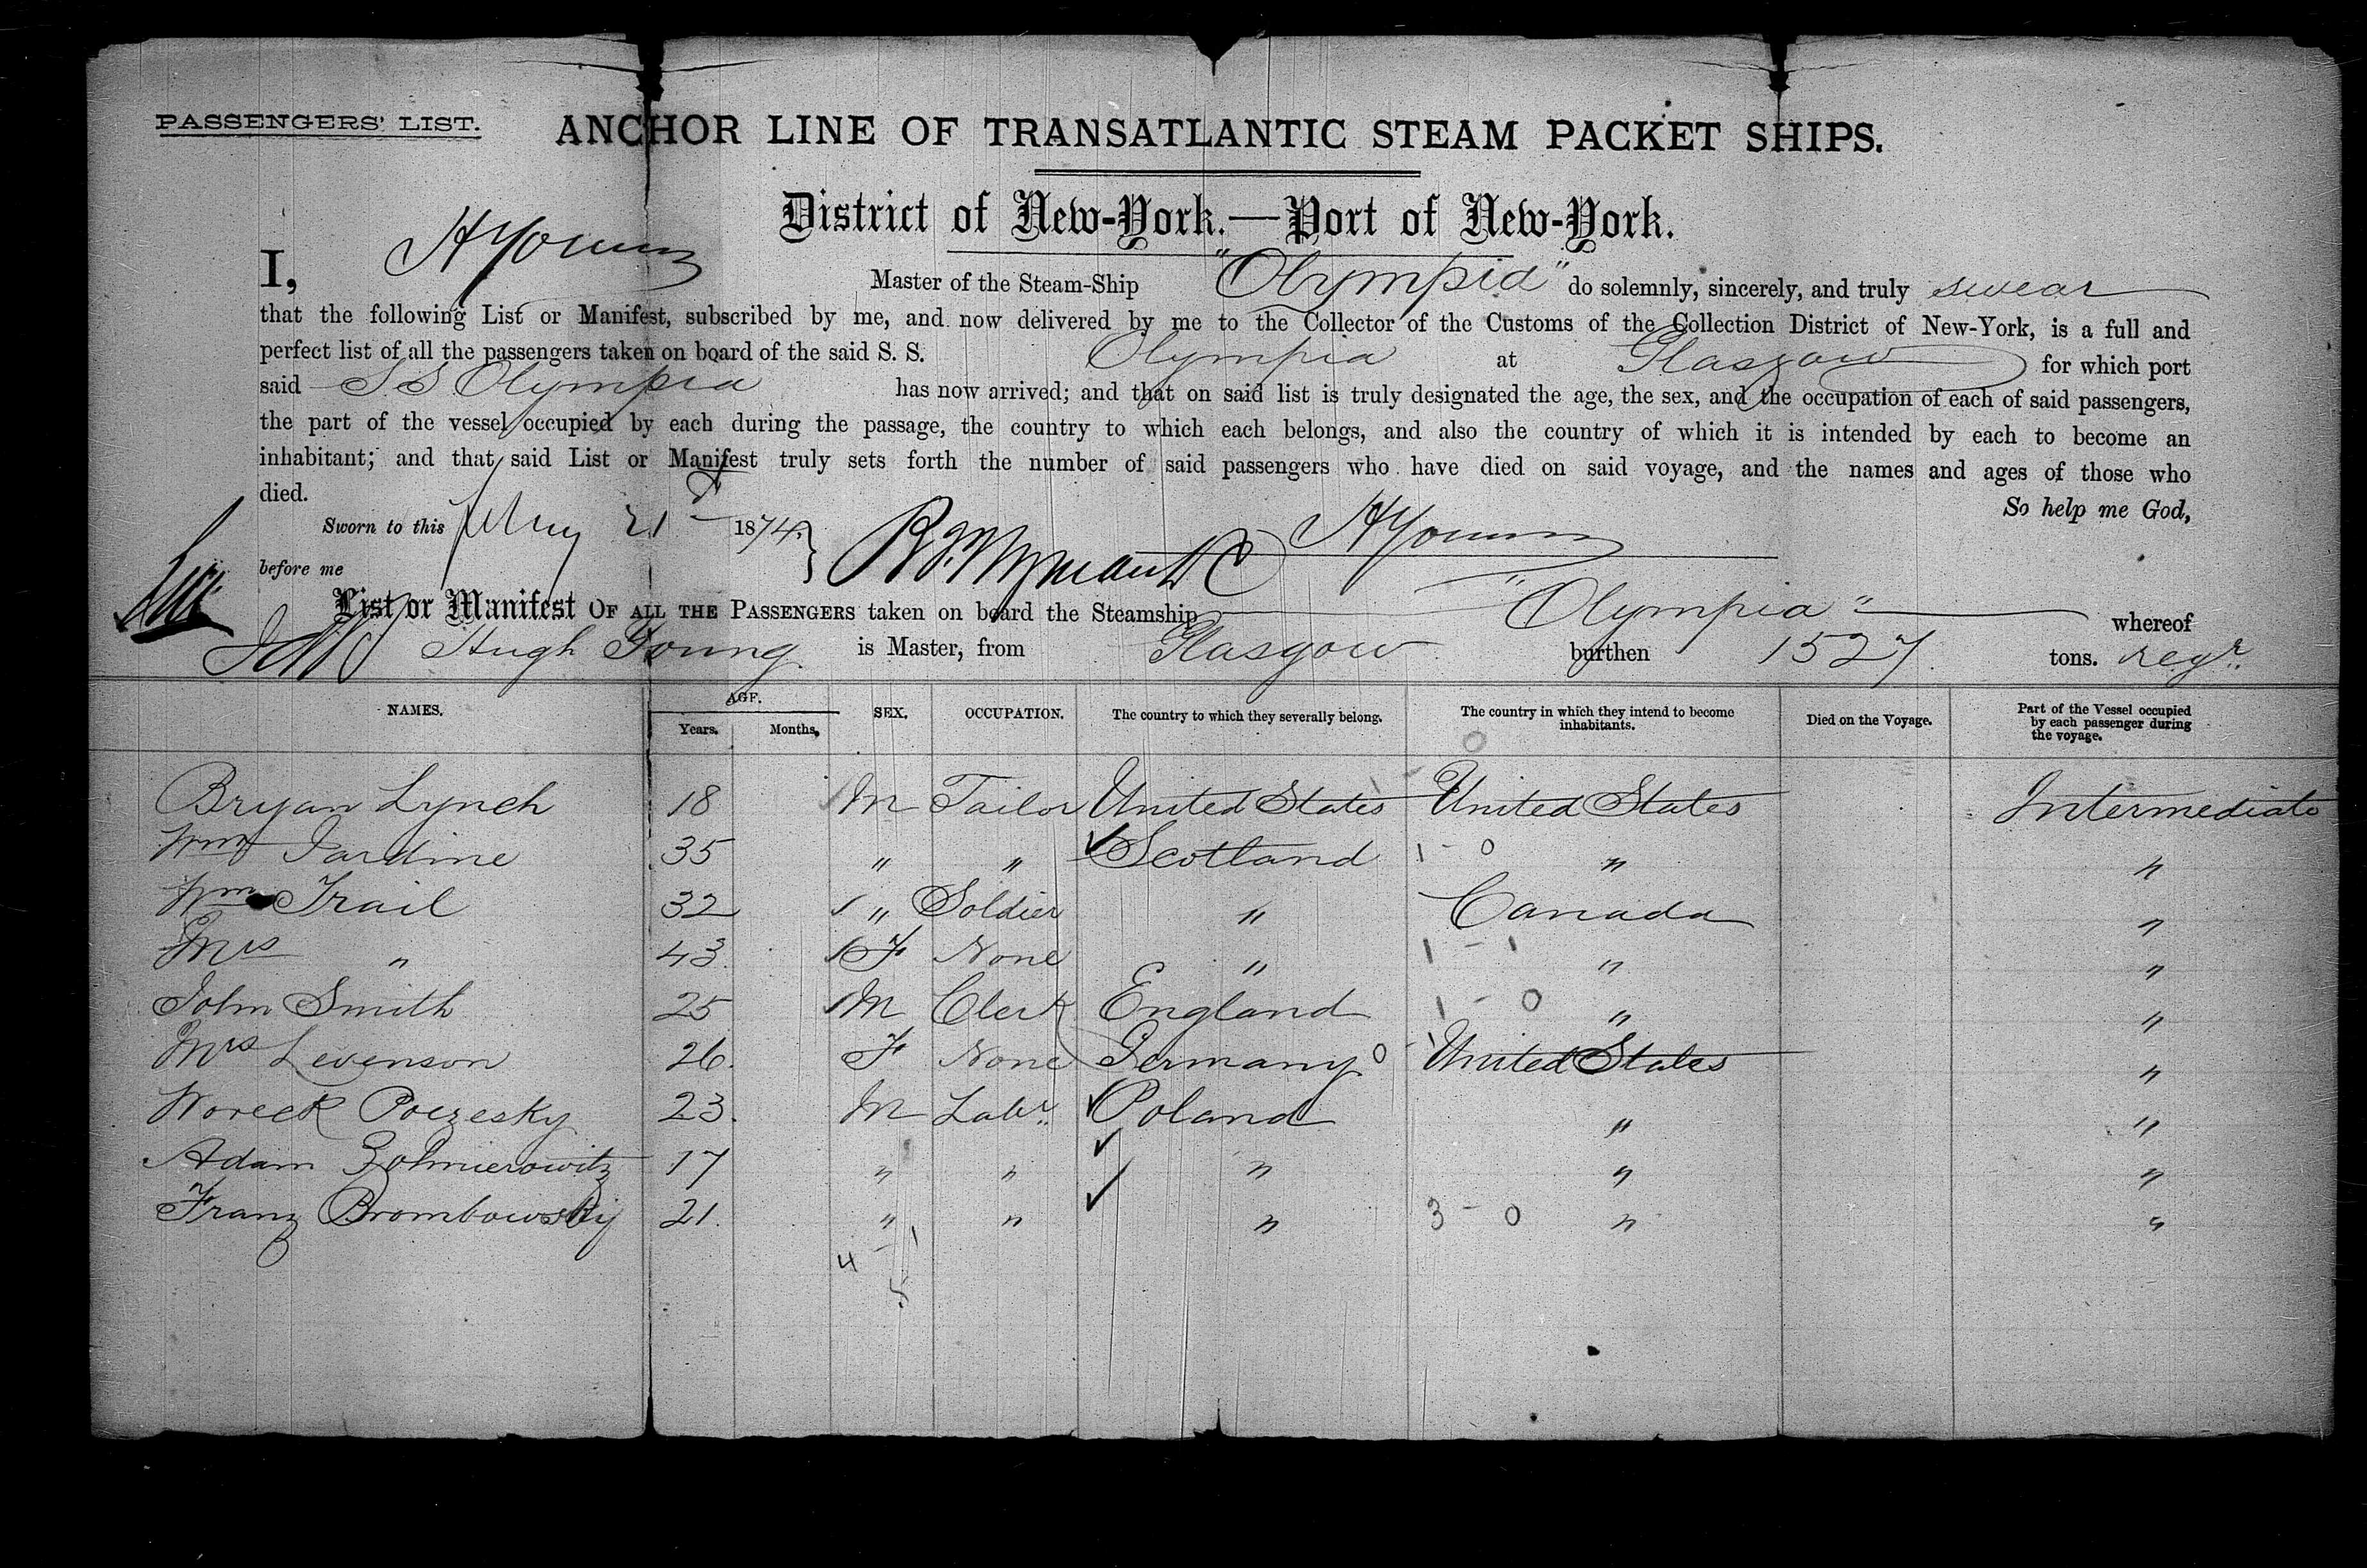 PASSENGERS' LIST.
ANCHOR LINE OF TRANSATLANTIC STEAM PACKET SHIPS.
District of New-York.—Port of New-York.
I, H Young Master of the Steam-Ship "Olympia" do solemnly, sincerely, and truly swear
that the following List or Manifest, subscribed by me, and now delivered by me to the Collector of the Customs of the Collection District of New-York, is a full and
perfect list of all the passengers taken on board of the said S. S. Olympia at Glasgow for which port
said S.S Olympia has now arrived; and that on said list is truly designated the age, the sex, and the occupation of each of said passengers,
the part of the vessel occupied by each during the passage, the country to which each belongs, and also the country of which it is intended by each to become an
inhabitant; and that said List or Manifest truly sets forth the number of said passengers who have died on said voyage, and the names and ages of those who
died. So help me God,
Sworn to this May 21st 1874. H Young
before me
List or Manifest OF ALL THE PASSENGERS taken on board the Steamship "Olympia" whereof
Hugh Young is Master, from Glasgow burthen 1527 tons. regr.
NAMES. AGE. SEX. OCCUPATION. The country to which they severally belong. The country in which they intend to become inhabitants. Died on the Voyage. Part of the Vessel occupied by each passenger during the voyage.
Years. Months.
Bryan Lynch 18 M Tailor United States United States Intermediate
Wm Jardine 35 " " Scotland 1 - 0 " "
Wm Trail 32 " Soldier " Canada "
Mrs " 43 F None " 1 - 1 " "
John Smith 25 M Clerk England 1 - 0 " "
Mrs Levenson 26. F None Germany 0 - 1 United States "
Woreck Poczesky 23. M Labr. Poland " "
Adam Zolmierowitz 17 " " " " "
Franz Brombowsky 21. " " " 3 - 0 " "
4 - 1
5